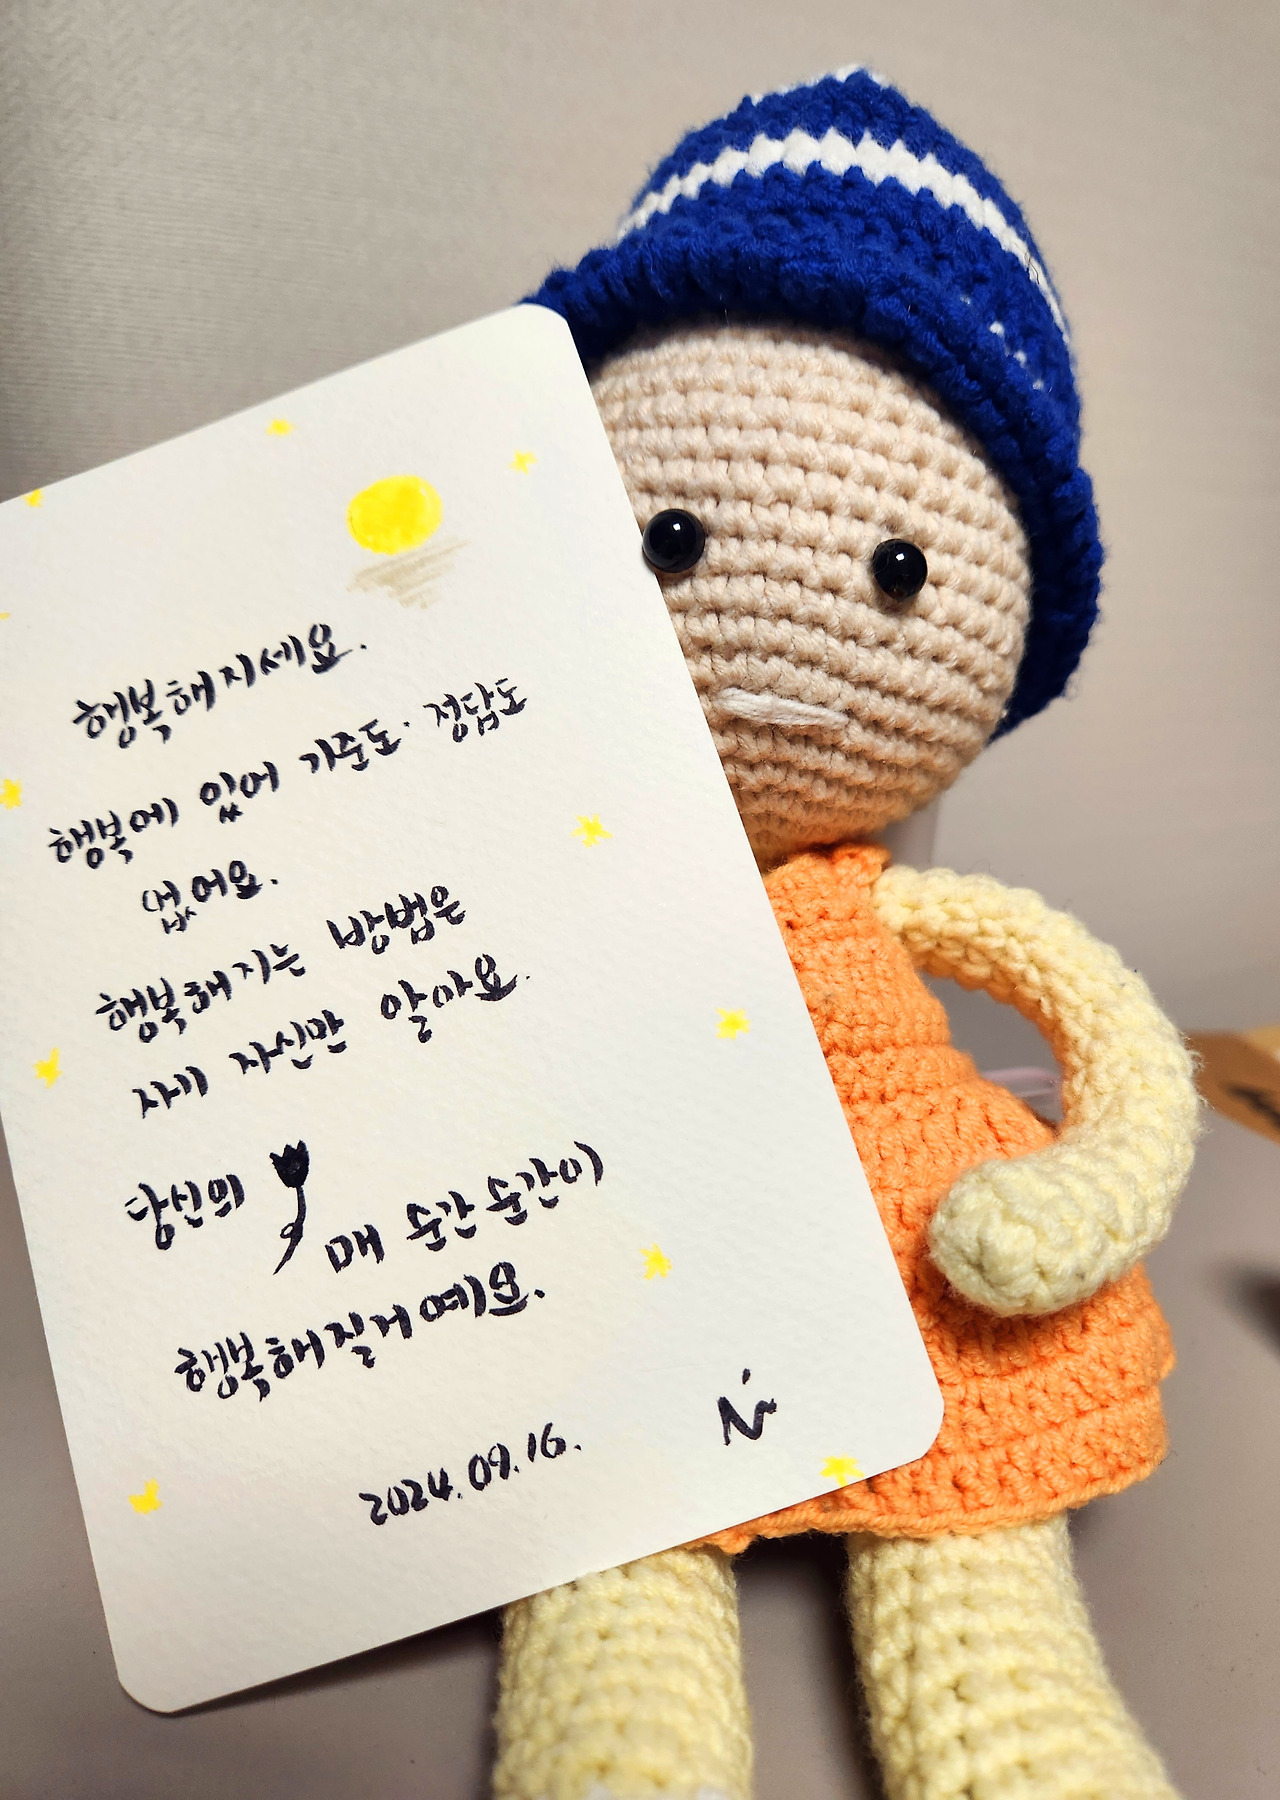 행복해지세요.
행복에 있어 기준도. 정답도
없어요.
행복해지는 방법은
자기 자신만 알아요.
당신의 매 순간순간이
행복해질거예요.
2024.09.16.